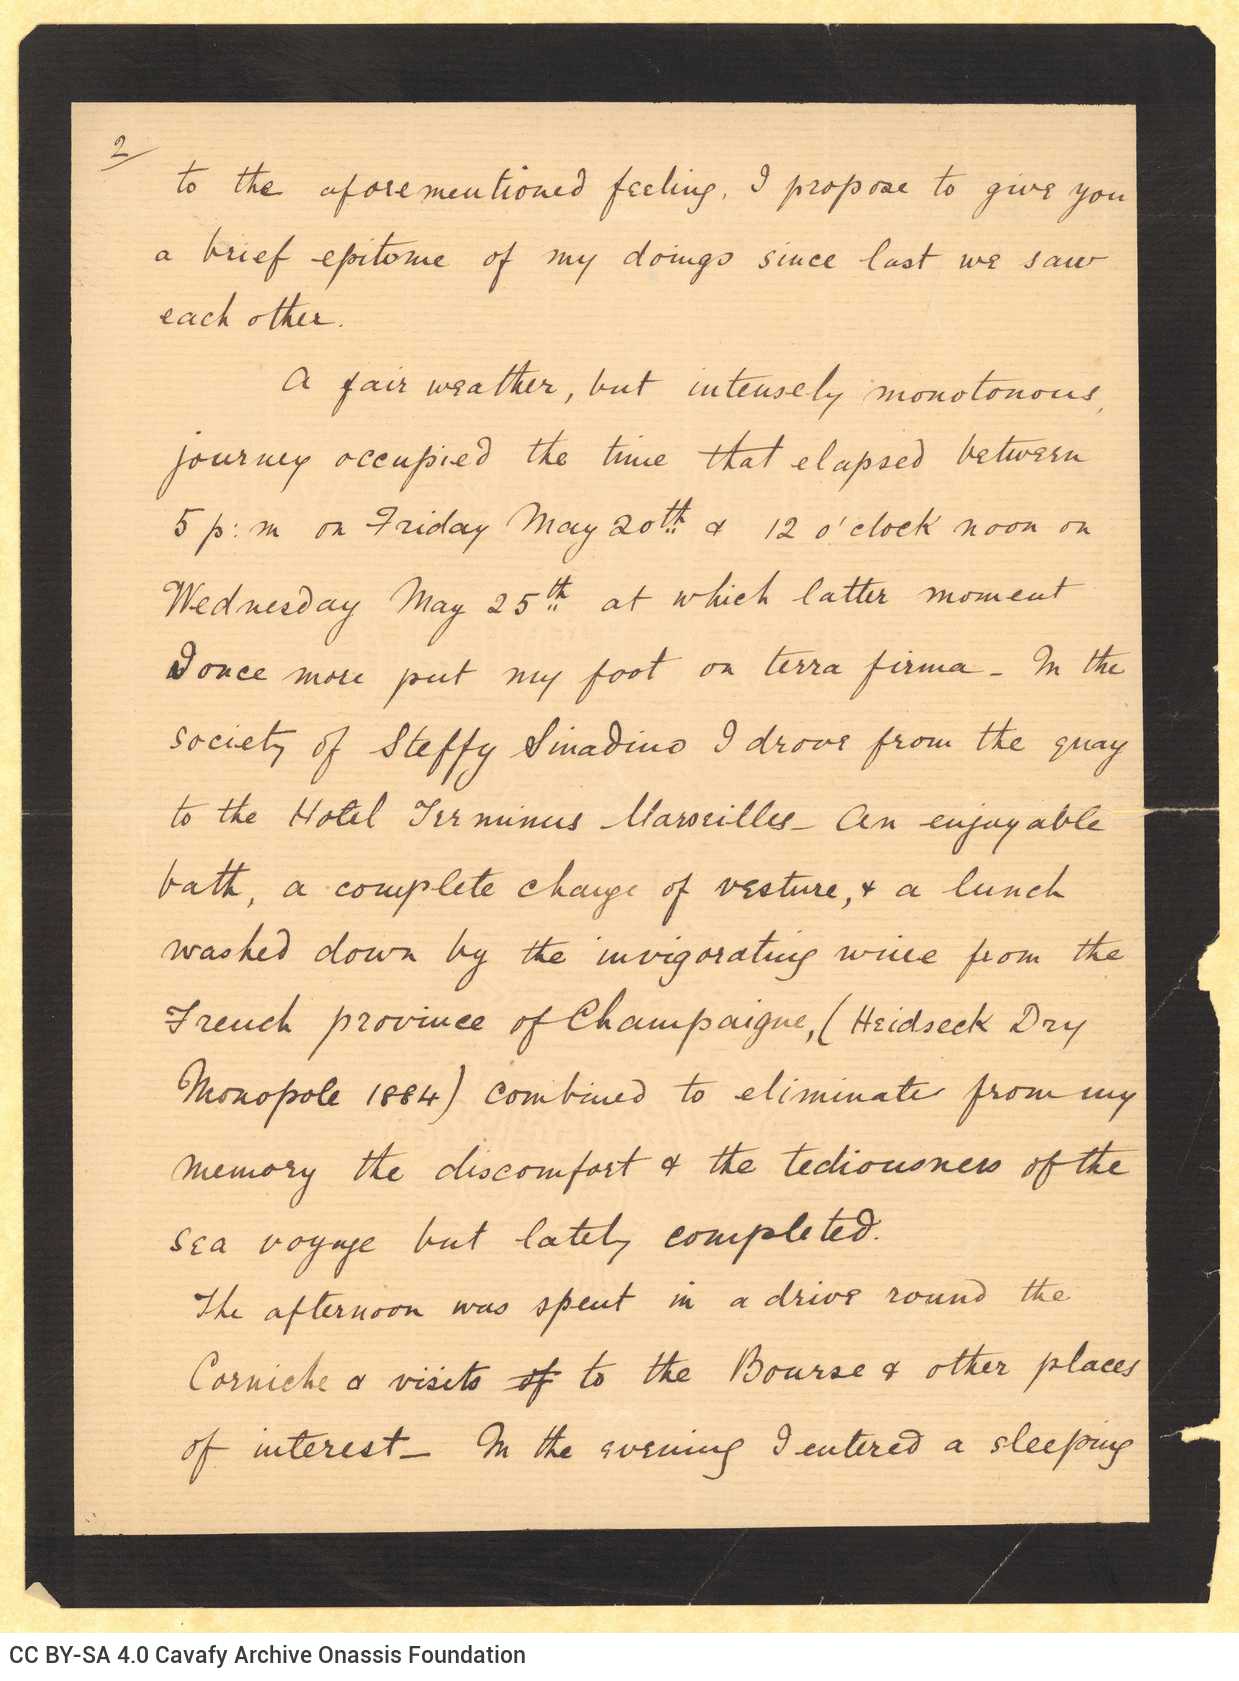 2/
to the aforementioned feeling. I propose to give you
a brief epitome of my doings since last we saw
each other.
A fair weather, but intensely monotonous,
journey occupied the time that elapsed between
5 p:m on Friday May 20th & 12 o'clock noon on
Wednesday May 25th at which latter moment
I once more put my foot on terra firma - In the
society of Steffy Sinadino I drove from the quay
to the Hotel Terminus Marseilles - An enjoyable
bath, a complete change of vesture, & a lunch
washed down by the invigorating wine from the
French province of Champaigne, (Heidseck Dry
Monopole 1884) combined to eliminate from my
memory the discomfort & the tediousness of the
sea voyage but lately completed.
The afternoon was spent in a drive round the
Corniche & visits of to the Bourse & other places
of interest - In the evening I entered a sleeping
CC BY-SA 4.0 Cavafy Archive Onassis Foundation